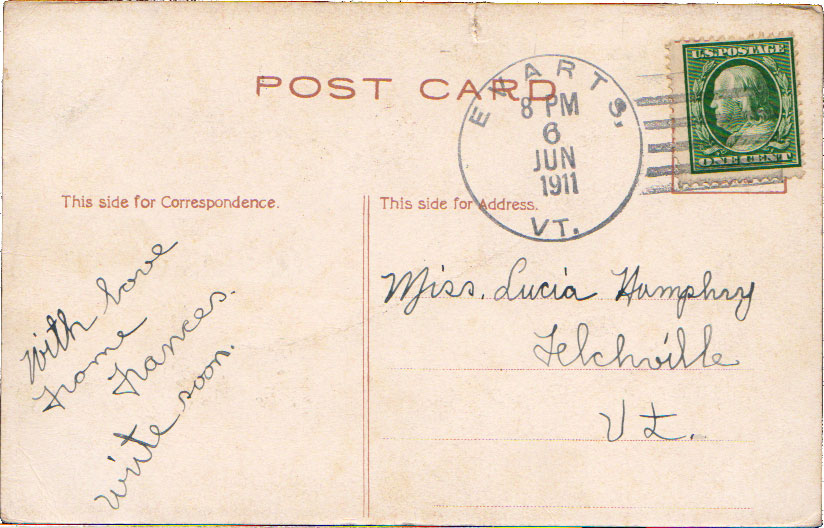 POST CARD
EVARTS,
8 PM
6
JUN
1911
VT.
U.S. POSTAGE
ONE CENT
This side for Correspondence.
This side for Address.
With love
frome
Frances.
write soon.
Miss. Lucia Humphry
Felchville
Vt.